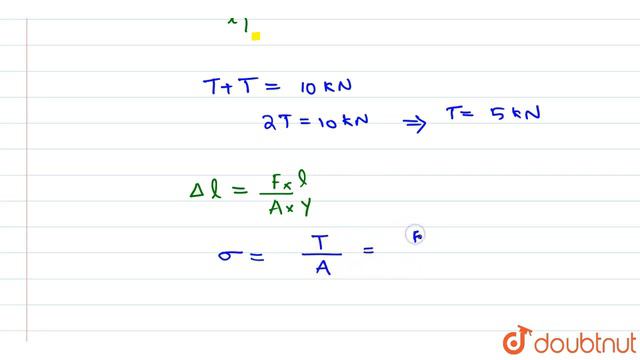 T + T = 10 kN
2T = 10 kN ⇒ T = 5 kN
Δl = F × l / A × Y
σ = T / A =
doubtnut